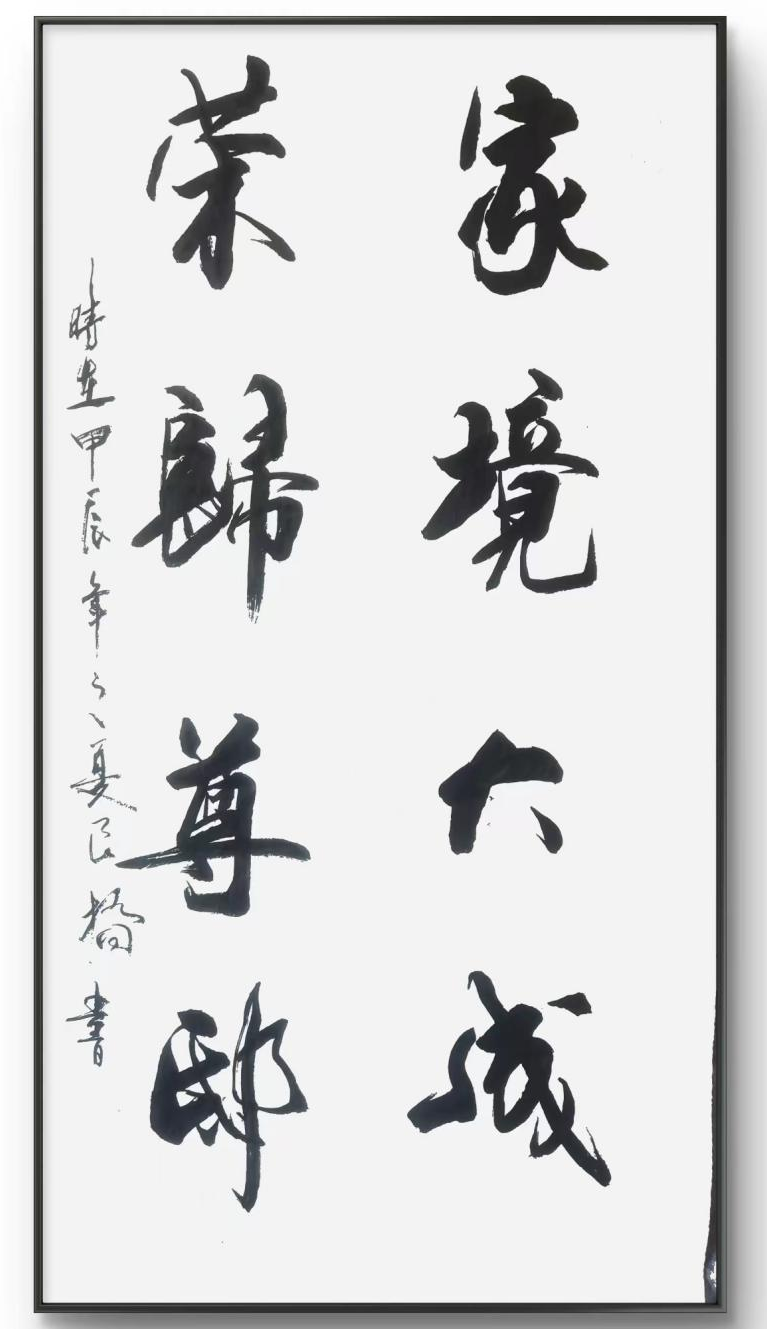 家境大成
荣歸尊邸
時在甲辰年之夏良橋書